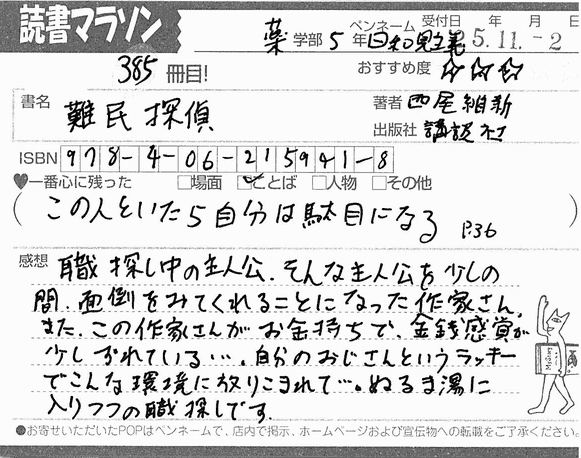 読書マラソン
ペンネーム 受付日 年 月 日
薬 学部 5 年 日和見主義 25.11.-2
385 冊目!
おすすめ度 ☆☆☆
書名 難民探偵
著者 西尾維新
出版社 講談社
ISBN 978-4-06-215941-8
♥一番心に残った □場面 ☑ことば □人物 □その他
(この人といたら自分は駄目になる P.36)
感想 職探し中の主人公。そんな主人公を少しの
間、面倒をみてくれることになった作家さん。
また、この作家さんがお金持ちで、金銭感覚が
少しずれている…。自分のおじさんというラッキー
でこんな環境に放りこまれて…。ぬるま湯に
入りつつの職探しです。
●お寄せいただいたPOPはペンネームで、店内で掲示、ホームページおよび宣伝物への転載をご了承ください。